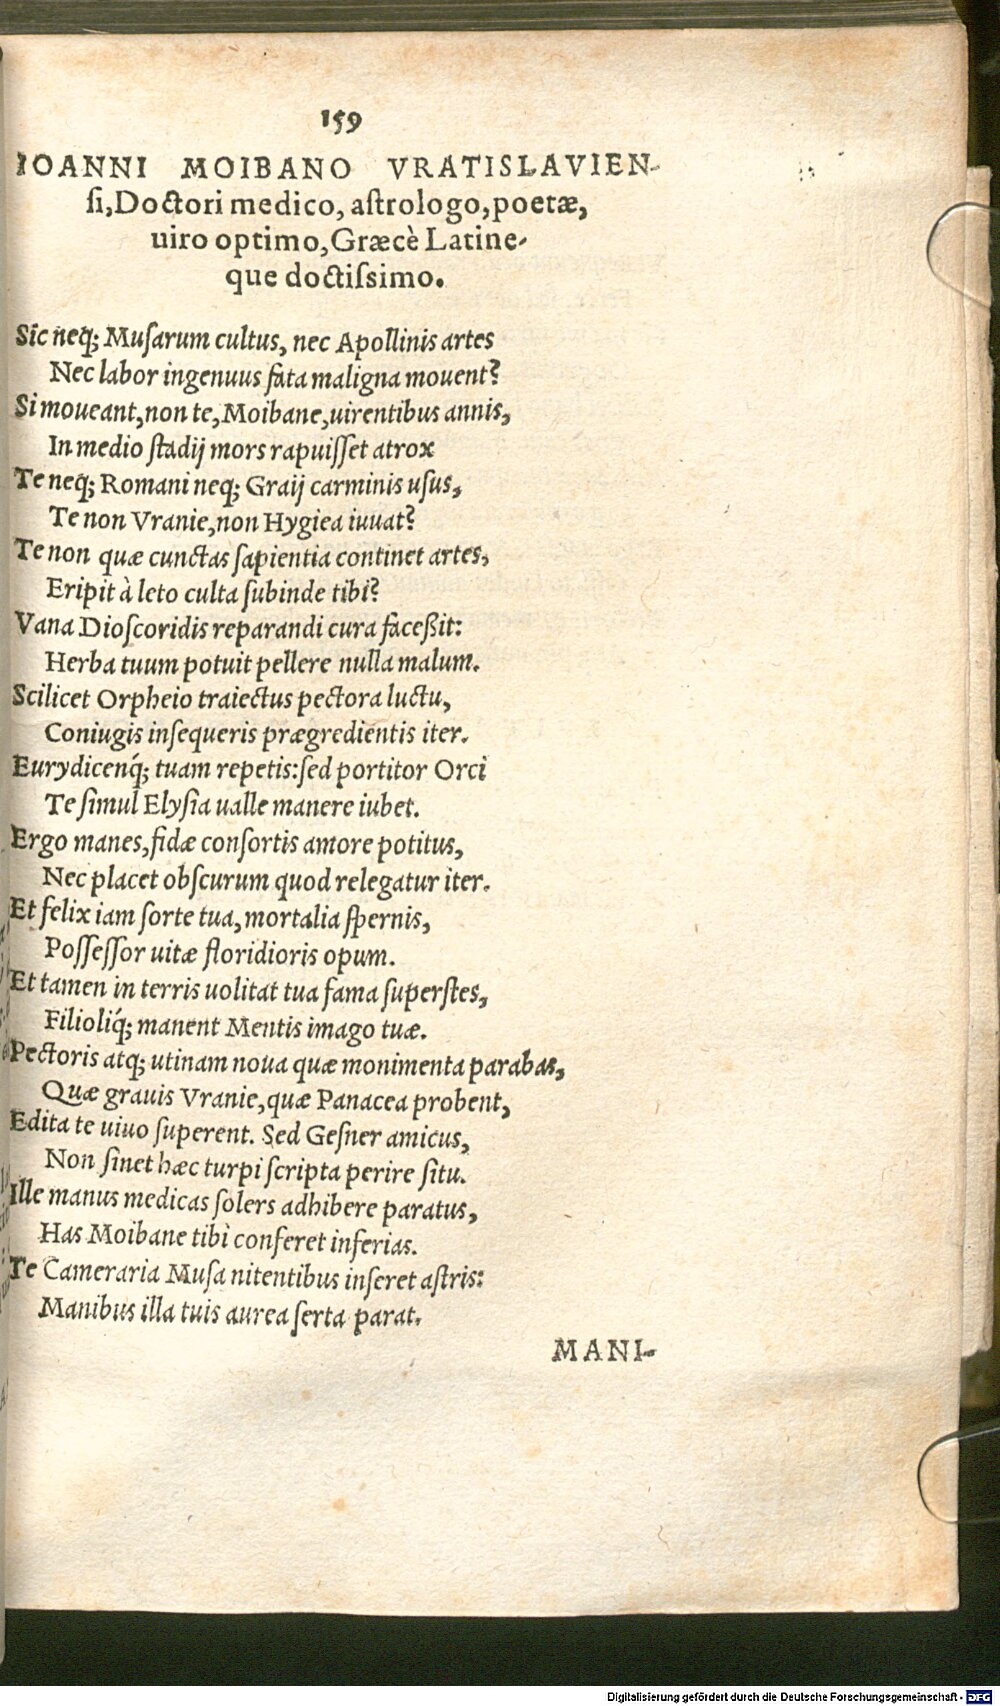 159
IOANNI MOIBANO VRATISLAVIEN-
si, Doctori medico, astrologo, poetæ,
uiro optimo, Græcè Latine-
que doctissimo.
Sic neq; Musarum cultus, nec Apollinis artes
Nec labor ingenuus fata maligna mouent?
Si moueant, non te, Moibane, uirentibus annis,
In medio stadij mors rapuisset atrox
Te neq; Romani neq; Graij carminis usus,
Te non Vranie, non Hygiea iuuat?
Te non quæ cunctas sapientia continet artes,
Eripit à leto culta subinde tibi?
Vana Dioscoridis reparandi cura faceßit:
Herba tuum potuit pellere nulla malum.
Scilicet Orpheio traiectus pectora luctu,
Coniugis insequeris prægredientis iter.
Eurydicenq́; tuam repetis: sed portitor Orci
Te simul Elysia ualle manere iubet.
Ergo manes, fidæ consortis amore potitus,
Nec placet obscurum quod relegatur iter.
Et felix iam sorte tua, mortalia spernis,
Possessor uitæ floridioris opum.
Et tamen in terris uolitat tua fama superstes,
Filioliq́; manent Mentis imago tuæ.
Pectoris atq; utinam noua quæ monimenta parabas,
Quæ grauis Vranie, quæ Panacea probent,
Edita te uiuo superent. Sed Gesner amicus,
Non sinet hæc turpi scripta perire situ.
Ille manus medicas solers adhibere paratus,
Has Moibane tibi conferet inferias.
Te Cameraria Musa nitentibus inseret astris:
Manibus illa tuis aurea serta parat.
MANI-
Digitalisierung gefördert durch die Deutsche Forschungsgemeinschaft - DFG